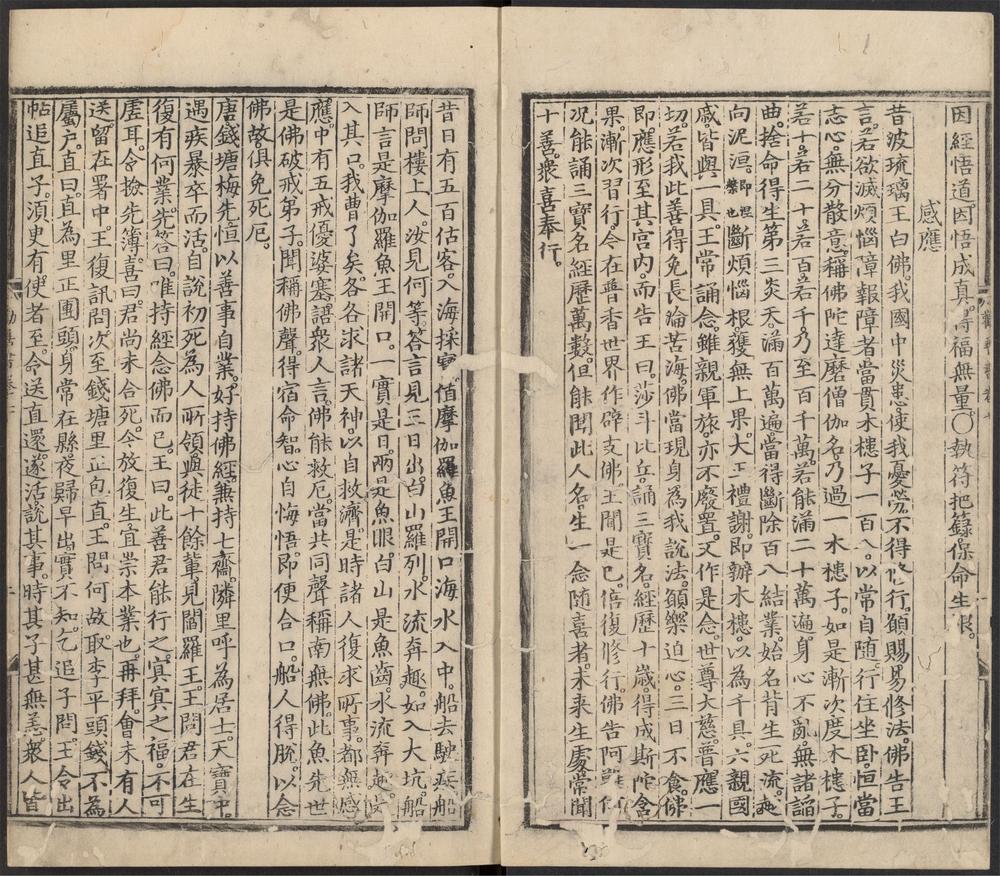 因經悟道。因悟成真。得福無量。〇執符把籙。保命生根。
感應
昔波琉璃王白佛。我國中災患。使我憂勞。不得修行。願賜易修法。佛告王
言。若欲滅煩惱障報障者。當貫木槵子一百八。以常自隨。行住坐卧。恒當
志心。無分散意。稱佛陀達磨僧伽名。乃過一木槵子。如是漸次度木槵子。
若十。若二十。若百。若千。乃至百千萬。若能滿二十萬遍。身心不亂。無諸諂
曲。捨命得生第三炎天。滿百萬遍。當得斷除百八結業。始名背生死流。趣
向泥洹。即涅槃也斷煩惱根。獲無上果。大王禮謝。即辦木槵以為千具。六親國
戚皆與一具。王常誦念。雖親軍旅。亦不廢置。又作是念。世尊大慈。普應一
切。若我此善。得免長淪苦海。佛當現身。為我說法。願樂迫心。三日不食。佛
即應形至其宮內。而告王曰。莎斗比丘。誦三寶名。經歷十歲。得成斯陀含
果。漸次習行。今在普香世界作辟支佛。王聞是已。倍復修行。佛告阿難。何
況能誦三寶名。經歷萬數。但能聞此人名。生一念隨喜者。未來生處。常聞
十善。衆喜奉行。
昔日有五百估客。入海採寶。值摩伽羅魚王開口。海水入中。船去駛疾。船
師問樓上人。汝見何等。荅言見三日出。白山羅列。水流奔趣。如入大坑。船
師言。是摩伽羅魚王開口。一實是日。兩是魚眼。白山是魚齒。水流奔趣。是
入其口。我曹了矣。各各求諸天神。以自救濟。是時諸人復求所事。都無感
應。中有五戒優婆塞。語衆人言。佛能救厄。當共同聲稱南無佛。此魚先世
是佛破戒弟子。聞稱佛聲。得宿命智。心自悔悟。即便合口。船人得脫。以念
佛故。俱免死厄。
唐錢塘梅先。恒以善事自業。好持佛經。兼持七齋。隣里呼為居士。天寶中。
遇疾暴卒而活。自說初死為人所領。與徒十餘輩。見閻羅王。王問君在生
復有何業。先荅曰。唯持經念佛而已。王曰。此善君能行之。冥冥之福。不可
虛耳。令撿先簿。喜曰。君尚未合死。今放復生。宜崇本業也。再拜。會未有人
送。留在署中。王復訊問。次至錢塘里正包直。王問何故取李平頭錢。不為
屬户。直曰。直為里正團頭。身常在縣。夜歸早出。實不知。乞追子問。王令出
帖追直子。須臾有使者至。命送直還。遂活說其事。時其子甚無恙。衆人皆